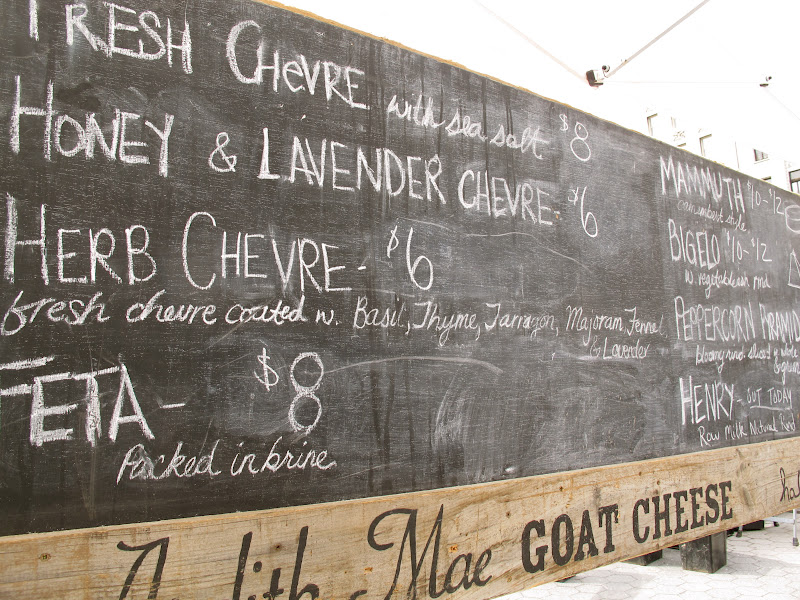 FRESH CHEVRE with sea salt $8
HONEY & LAVENDER CHEVRE $6
HERB CHEVRE - $6
fresh chevre coated w. Basil, Thyme, Tarragon, Majoram, Fennel
& Lavender
FETA - $8
Packed in brine
MAMMUTH $10-$12
camembert style
BIGELO $10-$12
w. vegetable ash rind
PEPPERCORN PYRAMID
bloomy rind
HENRY - OUT TODAY
Raw Milk Natural Rind
Mae GOAT CHEESE